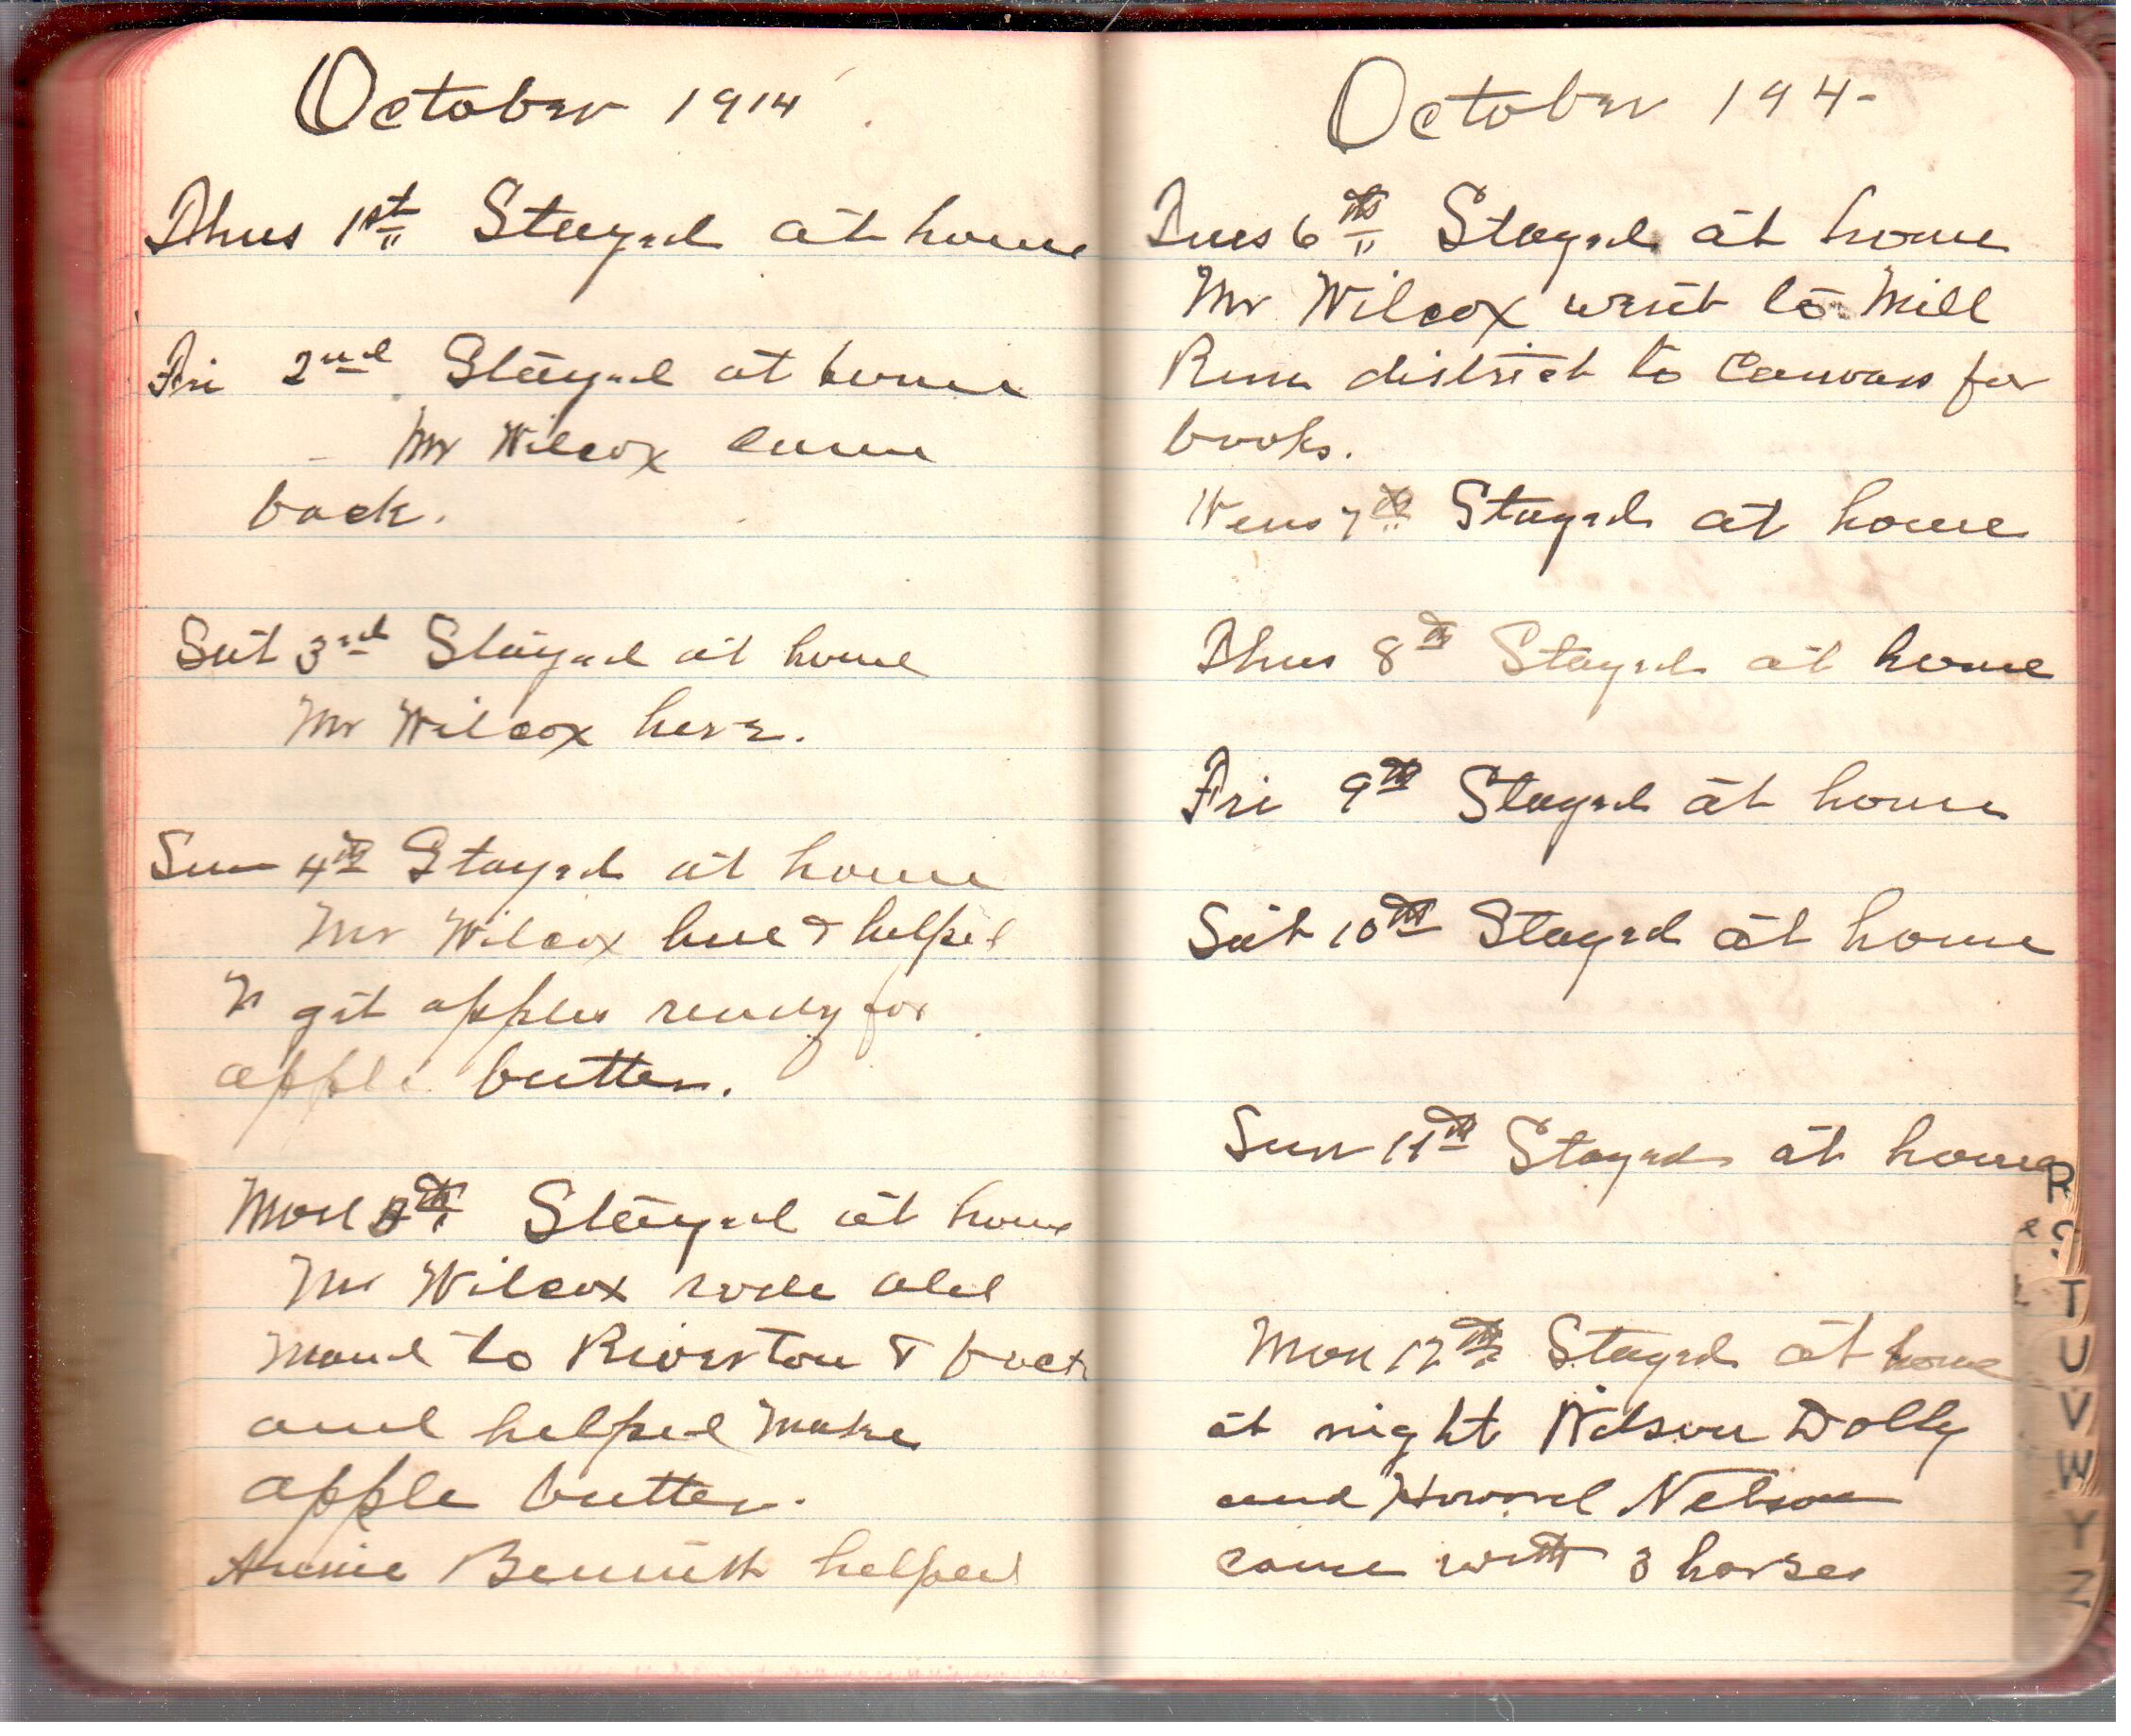 October 1914
Thus 1st Stayed at home
Fri 2nd Stayed at home
Mr Wilcox came
back.
Sat 3rd Stayed at home
Mr Wilcox here.
Sun 4th Stayed at home
Mr Wilcox here & helped
to git apples ready for
apple butter.
Mon 5th Stayed at home
Mr Wilcox rode old
Maud to Riverton & back
and helped make
apple butter.
Annie Bennett helped
October 194-
Tues 6th Stayed at home
Mr Wilcox went to Mill
Run district to Canvass for
books.
Wens 7th Stayed at home
Thus 8th Stayed at home
Fri 9th Stayed at home
Sat 10th Stayed at home
Sun 11th Stayed at home
Mon 12th Stayed at home
at night Wilson Dolly
and Howard Nelson
came with 3 horses
R
S
T
U
V
W
Y
Z